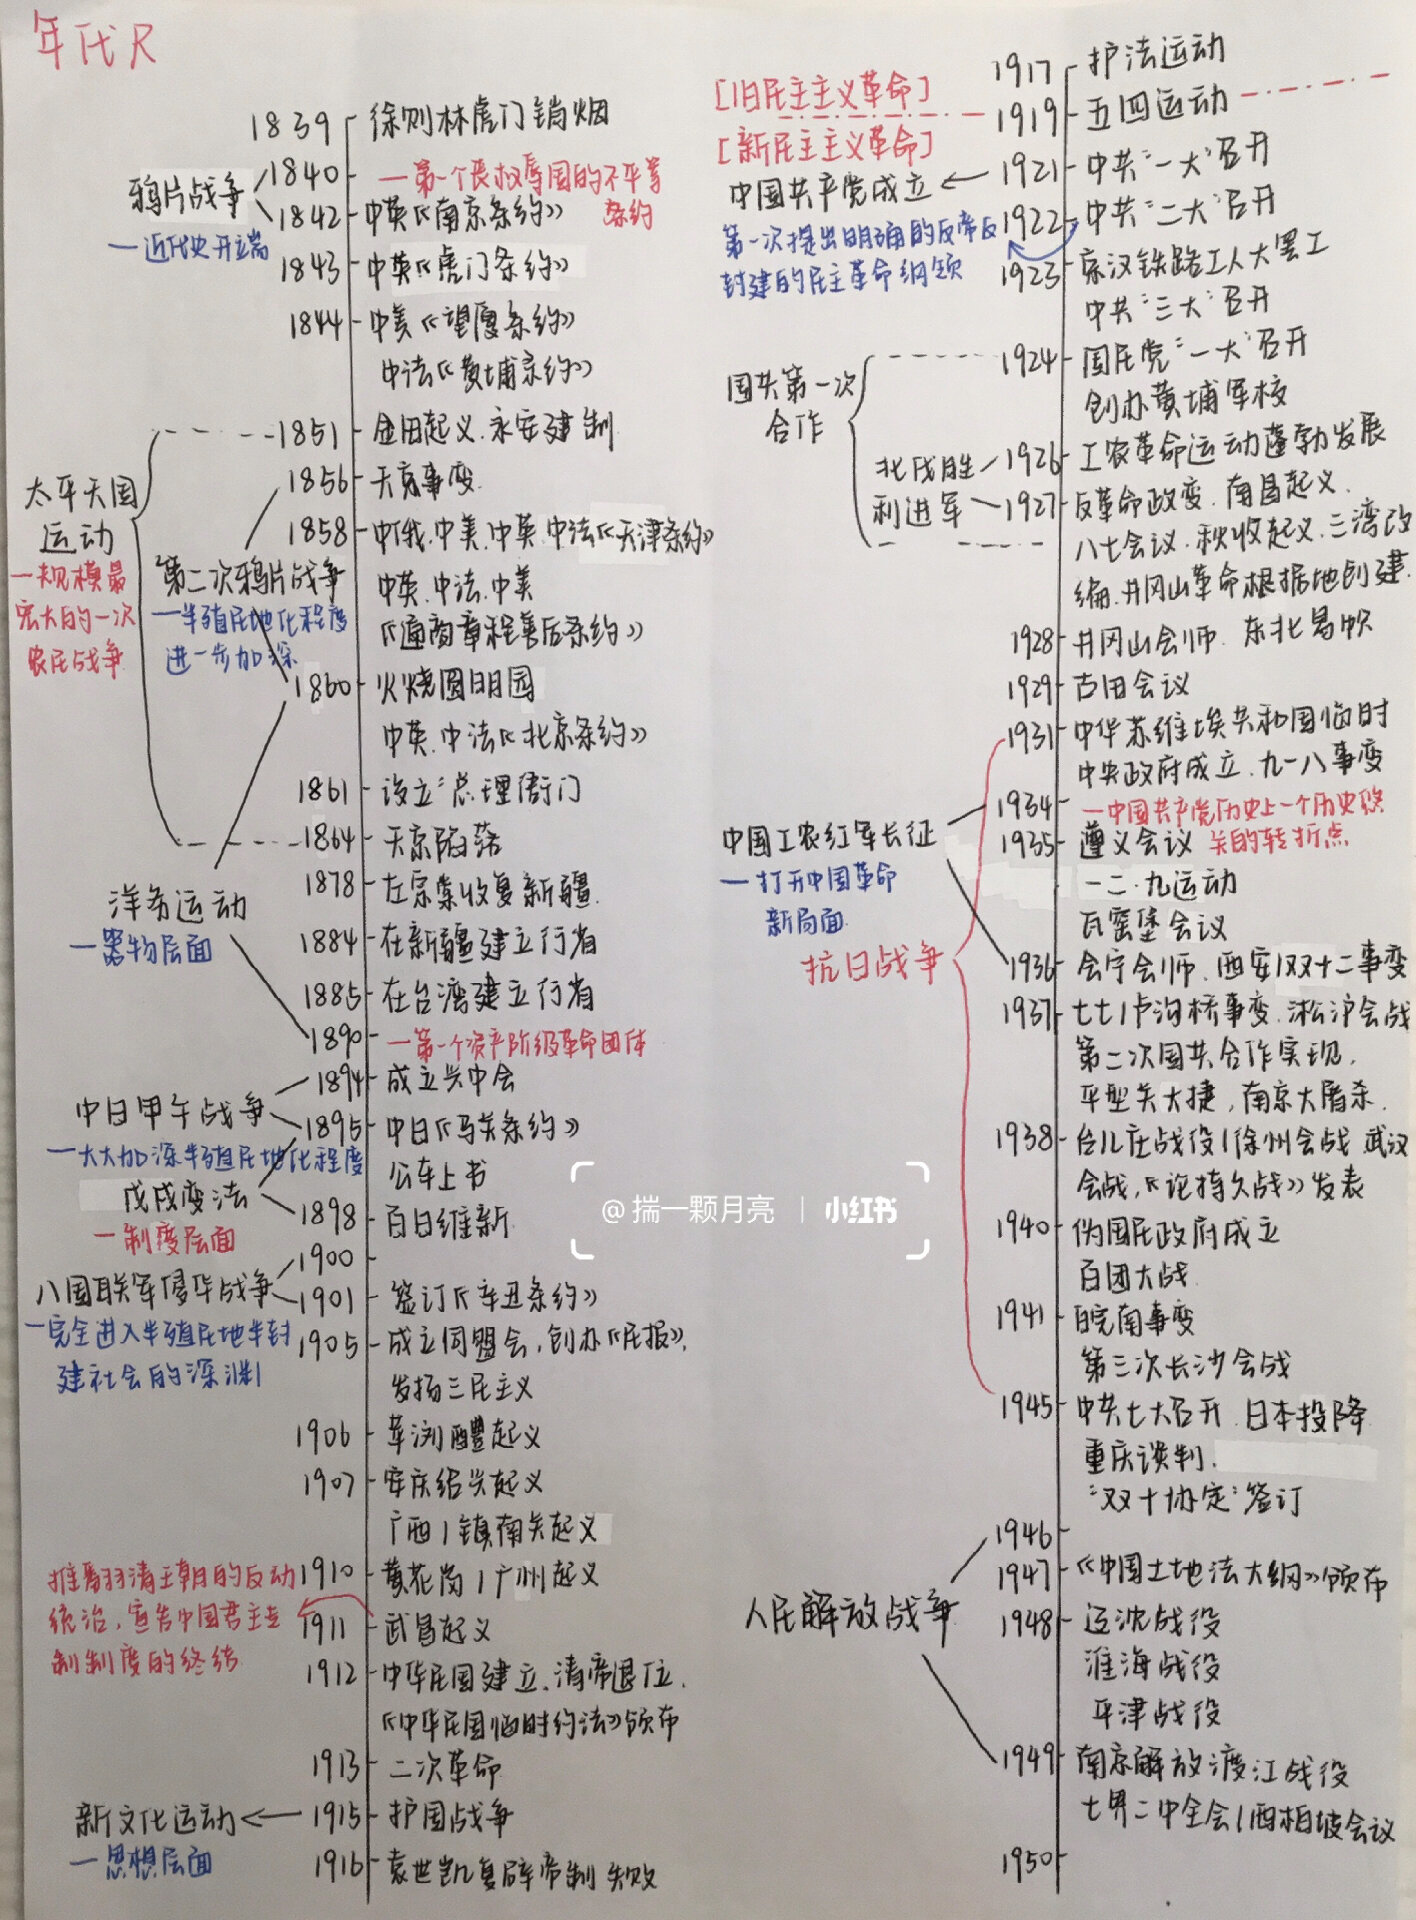 年代尺
1839 徐则林虎门销烟
鸦片战争 1840
—第一个丧权辱国的不平等条约
1842 中英《南京条约》
—近代史开端
1843 中英《虎门条约》
1844 中美《望厦条约》
中法《黄埔条约》
1851 金田起义.永安建制
1856 天京事变
太平天国
运动
—规模最
宏大的一次
农民战争
1858 中俄.中美.中英.中法《天津条约》
第二次鸦片战争
—半殖民地化程度
进一步加深
中英.中法.中美
《通商章程善后条约》
1860 火烧圆明园
中英.中法《北京条约》
1861 设立"总理衙门
1864 天京陷落
1878 左宗棠收复新疆
洋务运动
—器物层面
1884 在新疆建立行省
1885 在台湾建立行省
1890
—第一个资产阶级革命团体
1894 成立兴中会
中日甲午战争
—大大加深半殖民地化程度
1895 中日《马关条约》
公车上书
戊戌变法
—制度层面
1898 百日维新
1900
八国联军侵华战争
—完全进入半殖民地半封
建社会的深渊
1901 签订《辛丑条约》
1905 成立同盟会,创办《民报》,
发扬三民主义
1906 萍浏醴起义
1907 安庆绍兴起义
广西/镇南关起义
1910 黄花岗/广州起义
推翻清王朝的反动
统治,宣告中国君主专
制制度的终结
1911 武昌起义
1912 中华民国建立.清帝退位.
《中华民国临时约法》颁布
1913 二次革命
新文化运动 1915 护国战争
—思想层面
1916 袁世凯复辟帝制失败
1917 护法运动
[旧民主主义革命]
1919 五四运动
[新民主主义革命]
中国共产党成立 1921 中共"一大"召开
1922 中共"二大"召开
第一次提出明确的反帝反
封建的民主革命纲领
1923 京汉铁路工人大罢工
中共"三大"召开
国共第一次
合作
1924 国民党"一大"召开
创办黄埔军校
北伐胜
利进军
1926 工农革命运动蓬勃发展
1927 反革命政变.南昌起义.
八七会议.秋收起义.三湾改
编.井冈山革命根据地创建.
1928 井冈山会师.东北易帜
1929 古田会议
1931 中华苏维埃共和国临时
中央政府成立.九一八事变
中国工农红军长征
—打开中国革命
新局面
1934
—中国共产党历史上一个历史攸
关的转折点
1935 遵义会议
一二·九运动
瓦窑堡会议
抗日战争
1936 会宁会师.西安/双十二事变
1937 七七/卢沟桥事变.淞沪会战
第二次国共合作实现.
平型关大捷,南京大屠杀.
1938 台儿庄战役/徐州会战 武汉
会战,《论持久战》发表
@揣一颗月亮 | 小红书
1940 伪国民政府成立
百团大战
1941 皖南事变
第三次长沙会战
1945 中共七大召开.日本投降
重庆谈判.
"双十协定"签订
人民解放战争
1946
1947 《中国土地法大纲》颁布
1948 辽沈战役
淮海战役
平津战役
1949 南京解放渡江战役
七界二中全会/西柏坡会议
1950